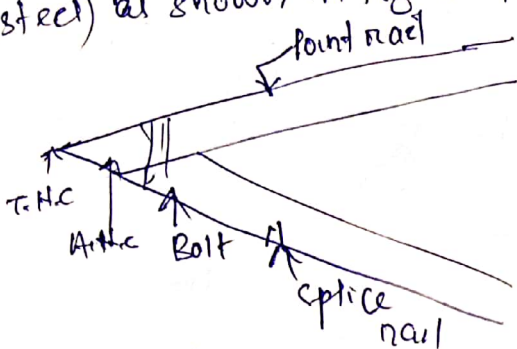 steel) as shown
Point rail
T.N.C
A.N.C Bolt
Splice
rail